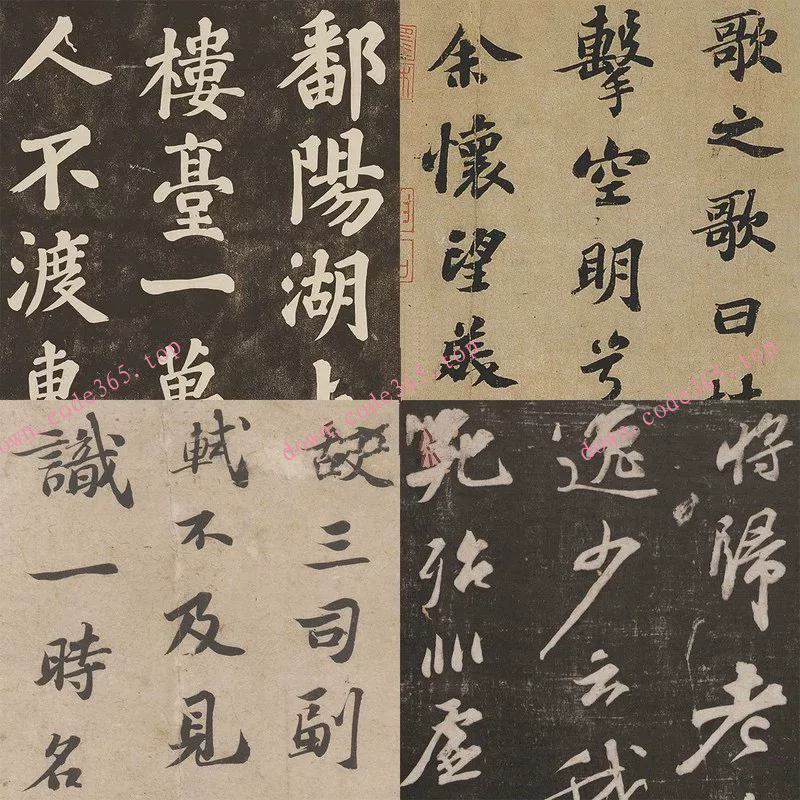 鄱陽湖上
樓臺一萬
人不渡
歌之歌曰桂
擊空明兮
余懷望美
故三司副
軾不及見
識一時名
將歸老
逸少云我
死殆非虛
down.code365.top
down.code365.top
down.code365.top
down.code365.top